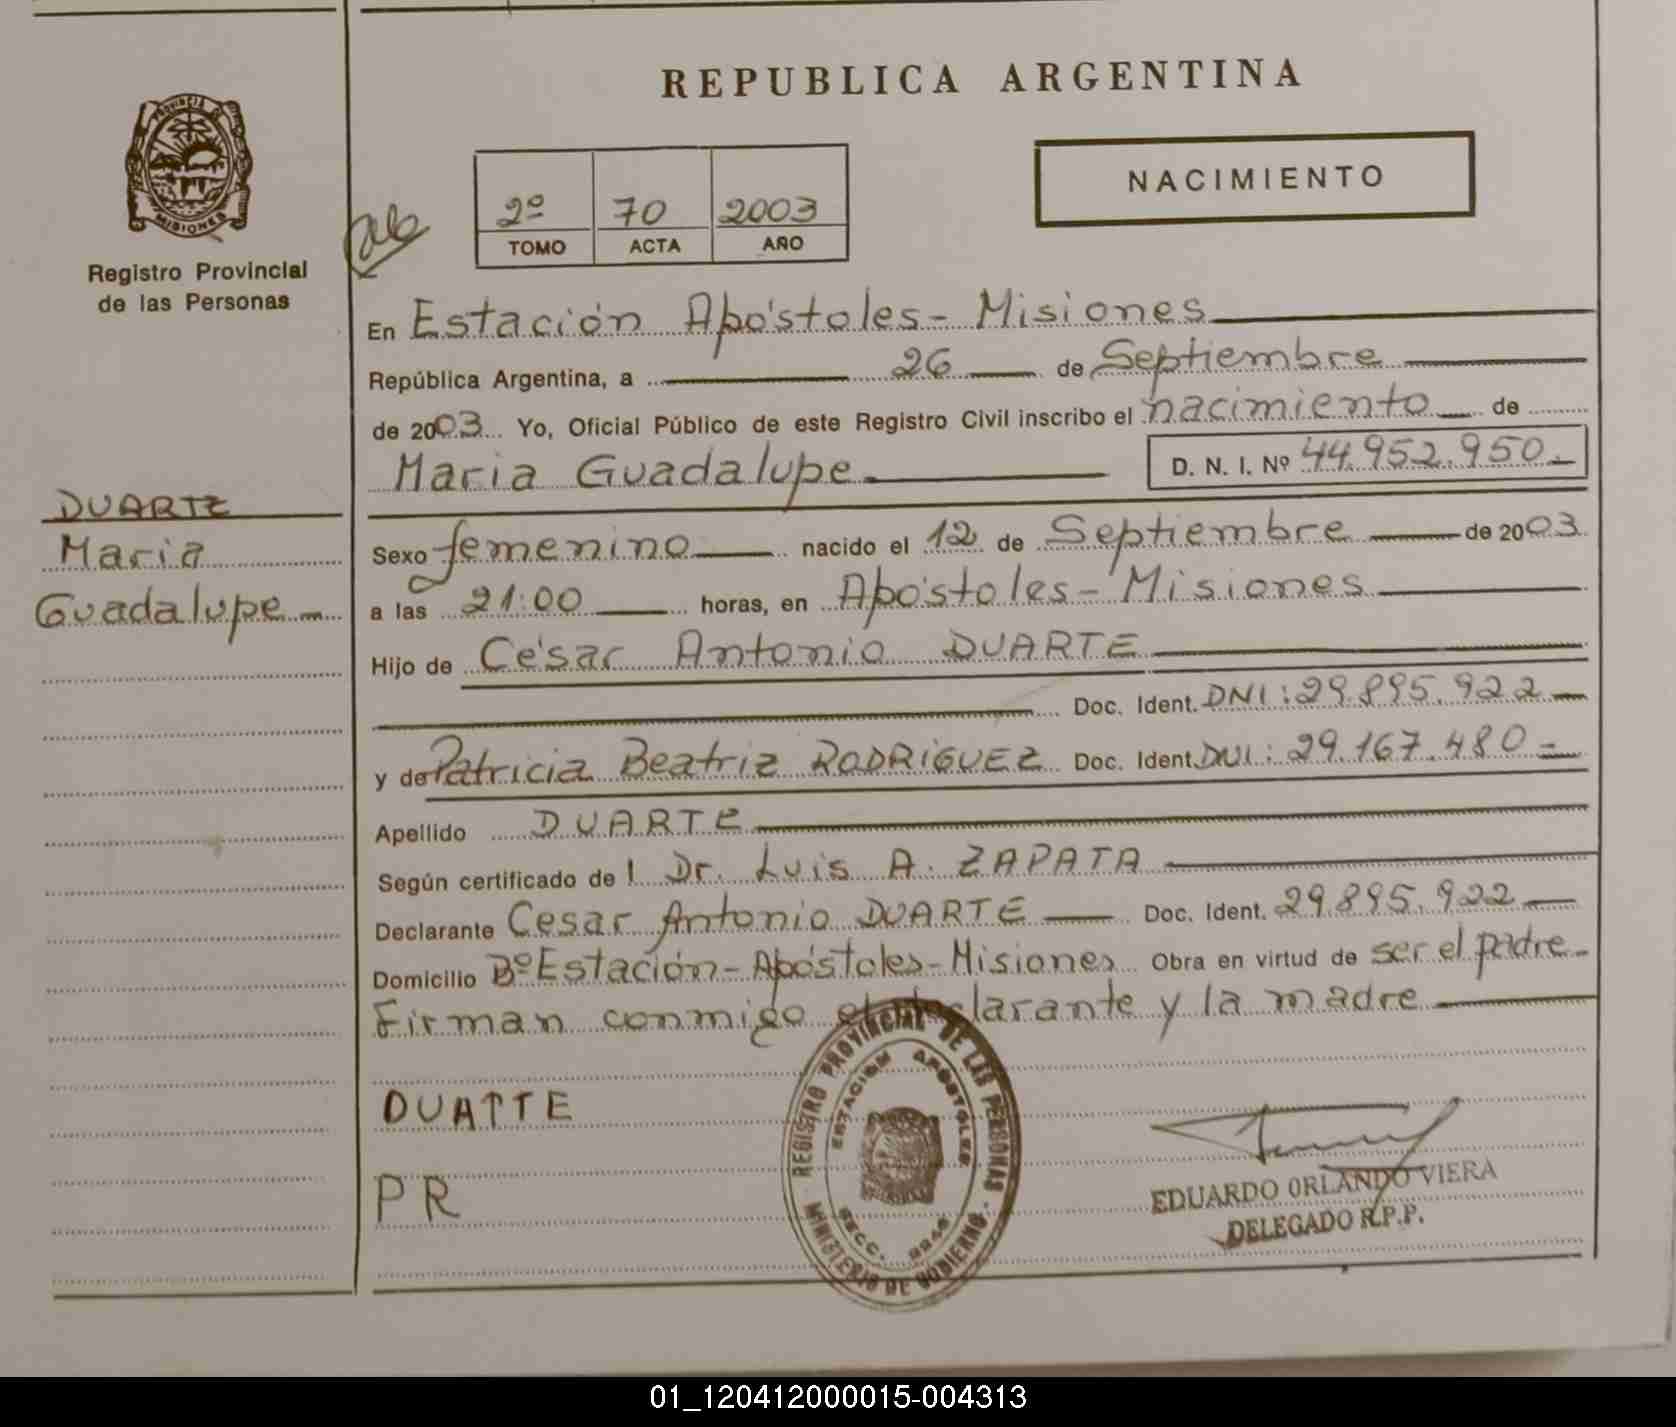 REPUBLICA ARGENTINA
PROVINCIA
MISIONES
Registro Provincial
de las Personas
2º 70 2003
TOMO ACTA AÑO
NACIMIENTO
DUARTE
Maria
Guadalupe
En Estación Apóstoles - Misiones
República Argentina, a 26 de Septiembre
de 2003 Yo, Oficial Público de este Registro Civil inscribo el nacimiento de
Maria Guadalupe D. N. I. Nº 44.952.950.
Sexo femenino nacido el 12 de Septiembre de 2003
a las 21:00 horas, en Apóstoles - Misiones
Hijo de César Antonio DUARTE
Doc. Ident. DNI: 29.895.922
y de Patricia Beatriz RODRIGUEZ Doc. Ident. DNI: 29.167.480
Apellido DUARTE
Según certificado de l Dr. Luis A. ZAPATA
Declarante Cesar Antonio DUARTE Doc. Ident. 29.895.922
Domicilio Bº Estación - Apóstoles - Misiones Obra en virtud de ser el padre
Firman conmigo el declarante y la madre
DUATTE
PR
REGISTRO PROVINCIAL DE LAS PERSONAS
ESTACION APOSTOLES
SECC.
MINISTERIO DE GOBIERNO
EDUARDO ORLANDO VIERA
DELEGADO R.P.P.
01_120412000015-004313